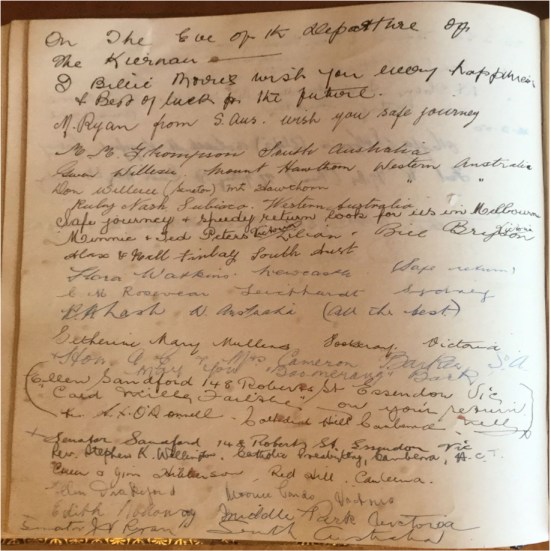 On The Eve of the departure of
The Kiernan
I Billie Moores wish you every happiness
& Best of luck for the future.
M. Ryan from S. Aus. wish you safe journey
M. M. Thompson South Australia
Gwen Willesee, Mount Hawthorn Western Australia
Don Willesee (Senator) Mt Hawthorn " "
Ruby Nash Subiaco. Western Australia
Safe journey & speedy return look for us in Melbourne
Minnie & Ted Peters Lilian Bill Brighton
Alax & Nell Finlay South Aust
Flora Watkins Newcastle (Safe return)
Leichhardt Sydney
Nash W Australia (All the best)
Catherine Mary Mullens, Footscray, Victoria
+ Hon. & Mrs Cameron Barker S.A.
May You Boomerang Back
(Ellen Sandford 148 Roberts St Essendon Vic
on your return
O'Donnell. Cathedral Hill
+ Senator Sandford 148 Roberts St. Essendon Vic
Rev. Stephen K. Catholic Presbytery, Canberra, A.C.T.
& Jim Red Hill. Canberra.
Edith Middle Park Victoria
Senator Ryan South Australia